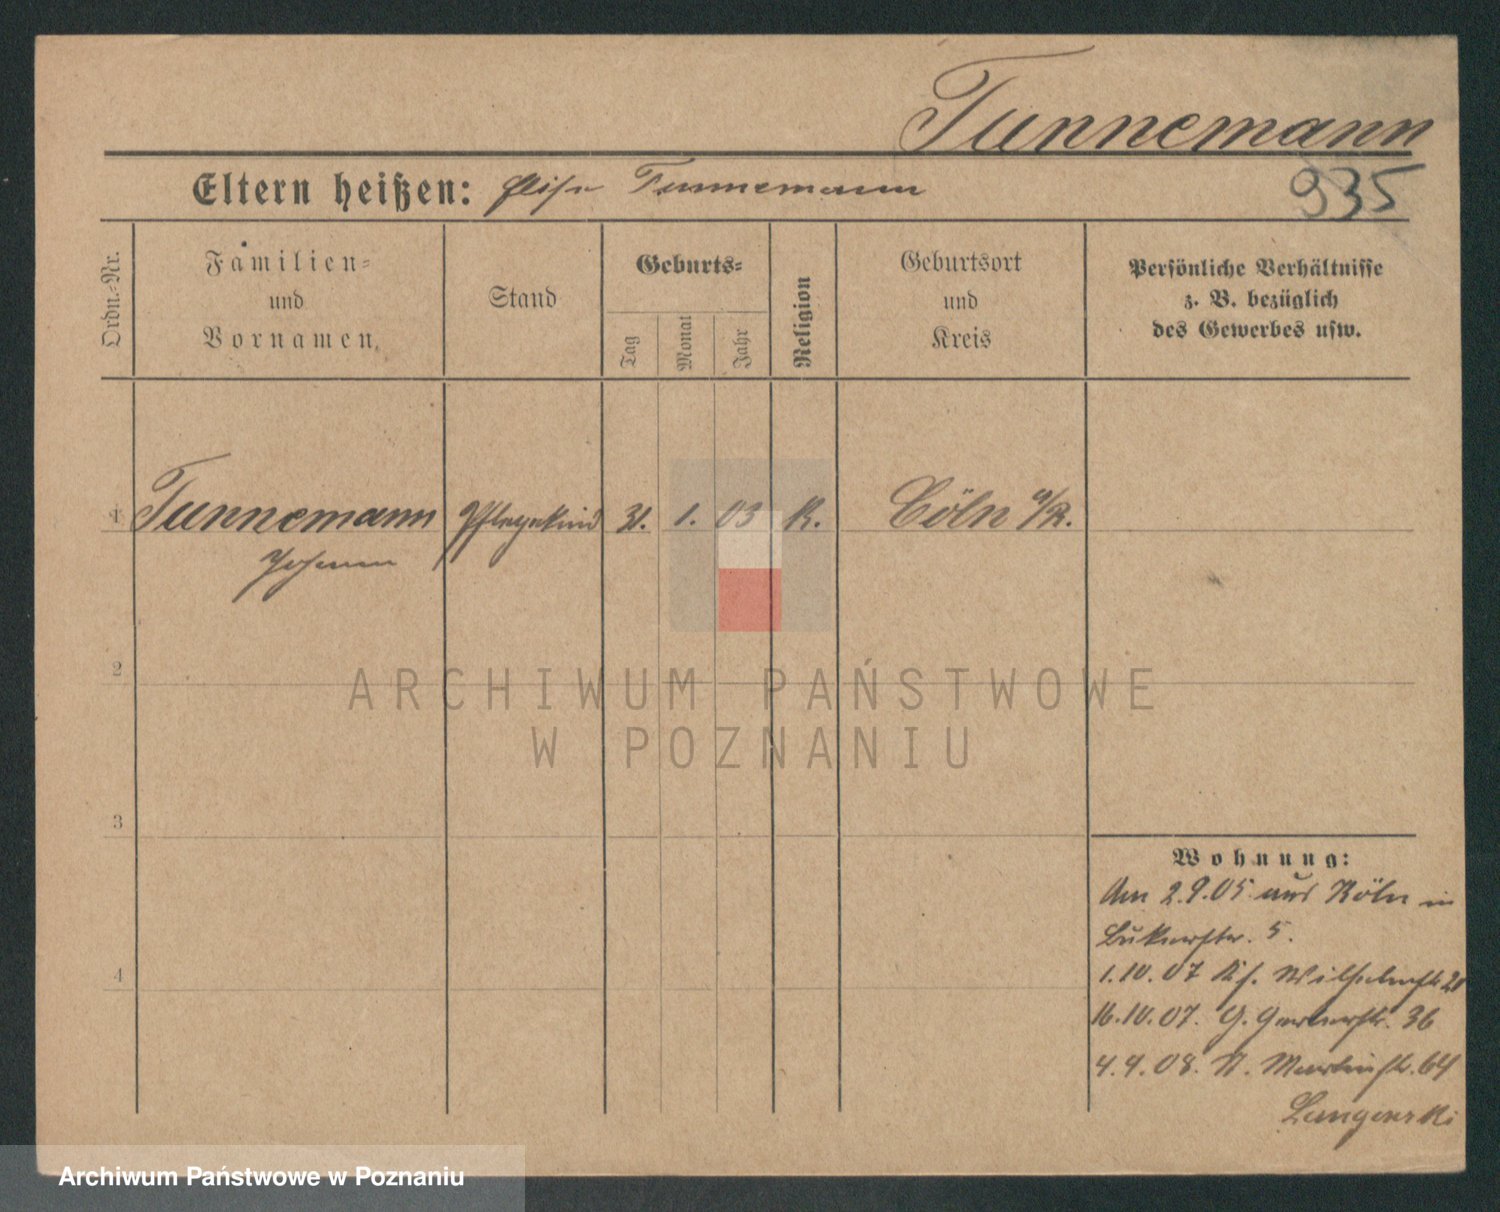 Tunnemann
Eltern heißen: Elise Tunnemann
935
Ordn.-Nr.
Familien-
und
Vornamen
Stand
Geburts-
Tag
Monat
Jahr
Religion
Geburtsort
und
Kreis
Persönliche Verhältnisse
z. B. bezüglich
des Gewerbes usw.
1 Tunnemann Pflegekind 31. 1. 03 K. Cöln a/R.
Johann
2
3
4
Wohnung:
Am 2.9.05 aus Köln in
Bukerstr. 5.
1.10.07 Wilhelmstr
16.10.07. G. Gerberstr. 36
4.4.08. St. Martinstr. 64
ARCHIWUM PAŃSTWOWE
W POZNANIU
Archiwum Państwowe w Poznaniu